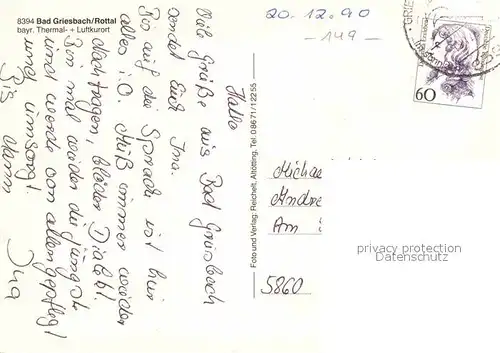 8394 Bad Griesbach/Rottal
bayr. Thermal- + Luftkurort
20.12.90
-149-
60
Hallo
Viele Grüße aus Bad Griesbach
sendet Euch Ina.
Bis auf die Sprache ist hier
alles i.O. Muß immer wieder
nachfragen, blöder Dialekt!
Bin mal wieder die jüngste
und werde von allen gepflegt
und umsorgt!
Bis dann
Ina
Foto und Verlag: Reichelt, Altötting, Tel. 08671/12255
Michae
Andre
Am
5860
privacy protection
Datenschutz